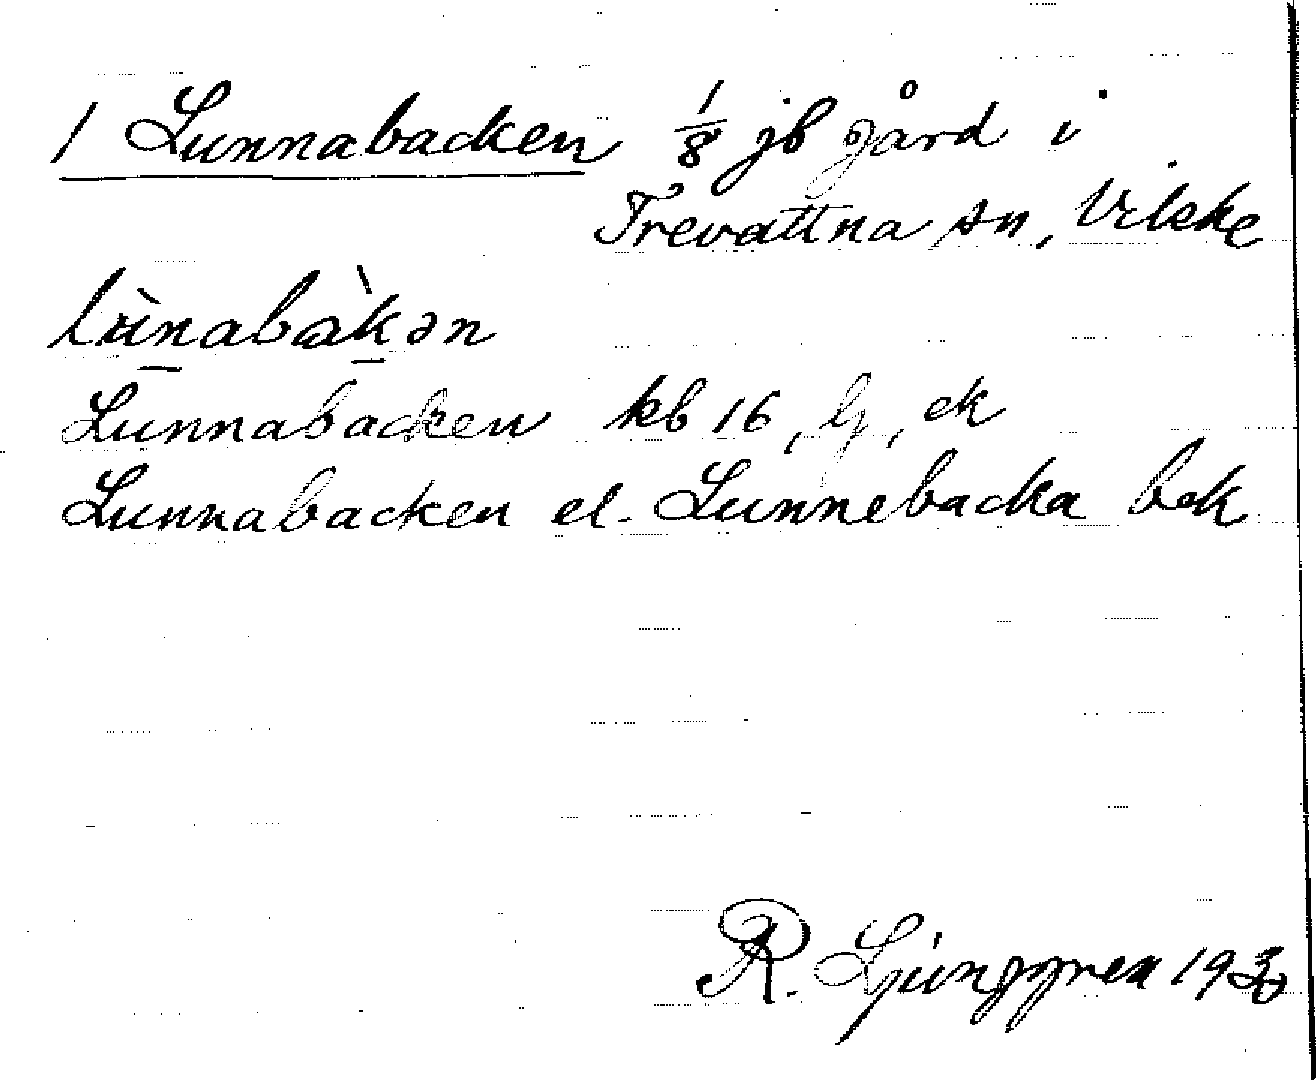 1 Lunnabacken 1/8 jb gård i
Trevattna sn, Vilske
lùnabàkən
Lunnabacken kb 16, lj, ek
Lunnabacken el. Lunnebacka bek
R. Ljunggren